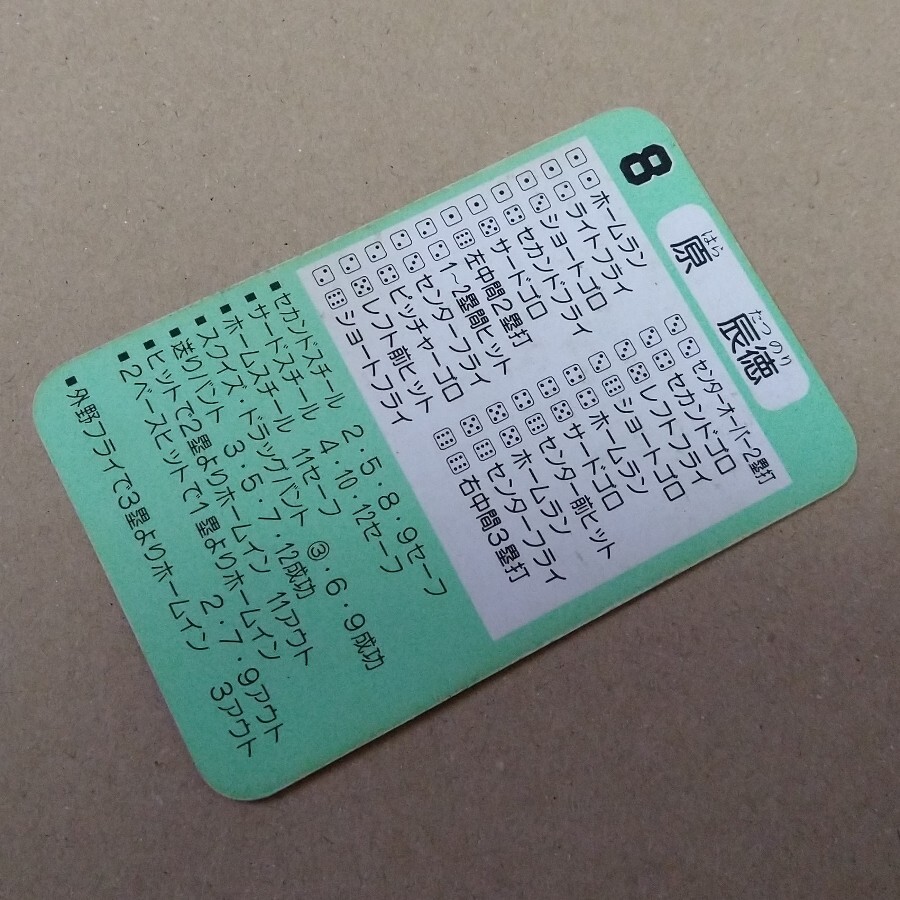 8
はら たつ のり
原 辰徳
ホームラン
ライトフライ
ショートゴロ
セカンドフライ
サードゴロ
左中間2塁打
1~2塁間ヒット
センターフライ
ピッチャーゴロ
レフト前ヒット
ショートフライ
センターオーバー2塁打
セカンドゴロ
レフトフライ
ショートゴロ
ホームラン
サードゴロ
センター前ヒット
ホームラン
センターフライ
右中間3塁打
■セカンドスチール 2.5.8.9セーフ
■サードスチール 4.10.12セーフ
■ホームスチール 11セーフ
■スクイズ・ドラッグバント ③.6.9成功
■送りバント 3.5.7.12成功
■ヒットで2塁よりホームイン 11アウト
■2ベースヒットで1塁よりホームイン 2.7.9アウト
■外野フライで3塁よりホームイン 3アウト